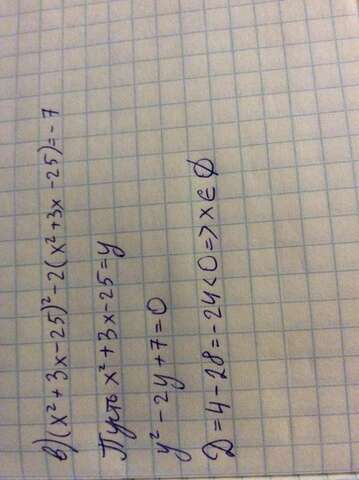 в) (x²+3x-25)²-2(x²+3x-25)=-7
Пусть x²+3x-25=y
y²-2y+7=0
D=4-28=-24<0=>x∈∅